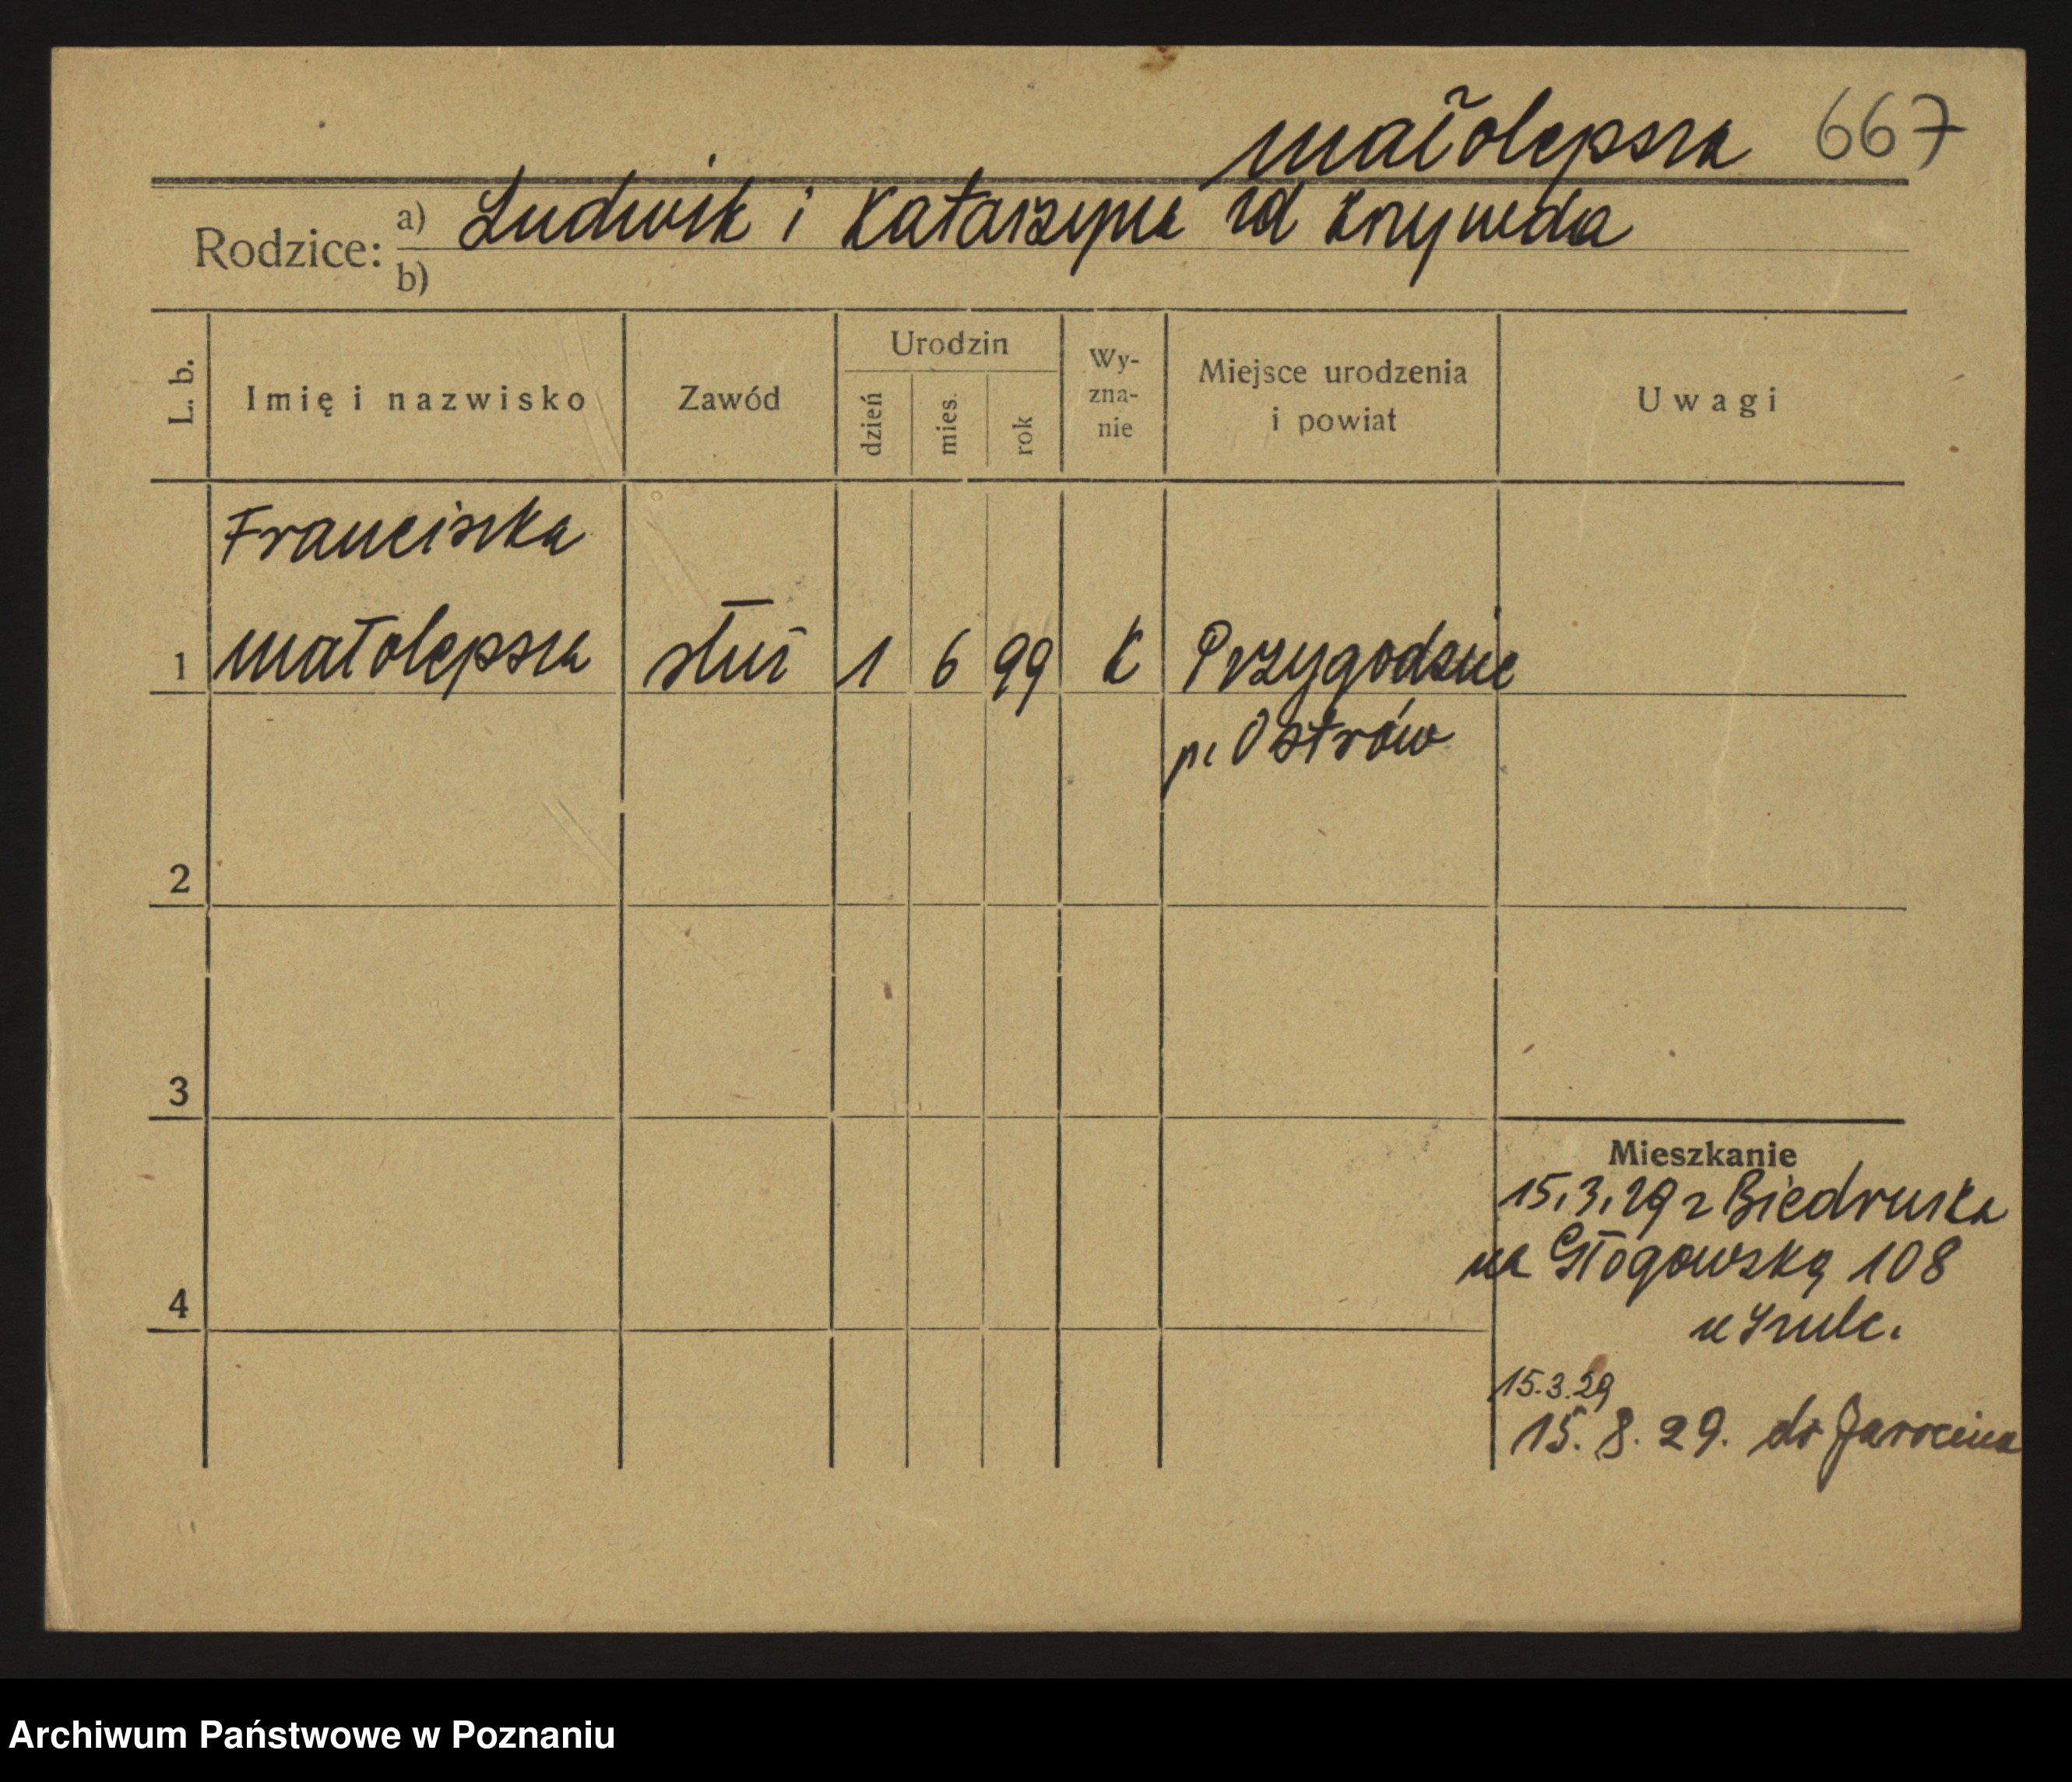 Małolepsza 667
Rodzice: a) Ludwik i Katarzyna zd Krzywda
b)
L. b. Imię i nazwisko Zawód Urodzin dzień mies. rok Wy-zna-nie Miejsce urodzenia i powiat Uwagi
Franciszka
1 Małolepsza służ 1 6 99 K Przygodzice
p. Ostrów
2
3
Mieszkanie
15.3.29 z Biedruska
na Głogowską 108
4
u Szulc.
15.3.29
15.8.29. do Jarocina
Archiwum Państwowe w Poznaniu